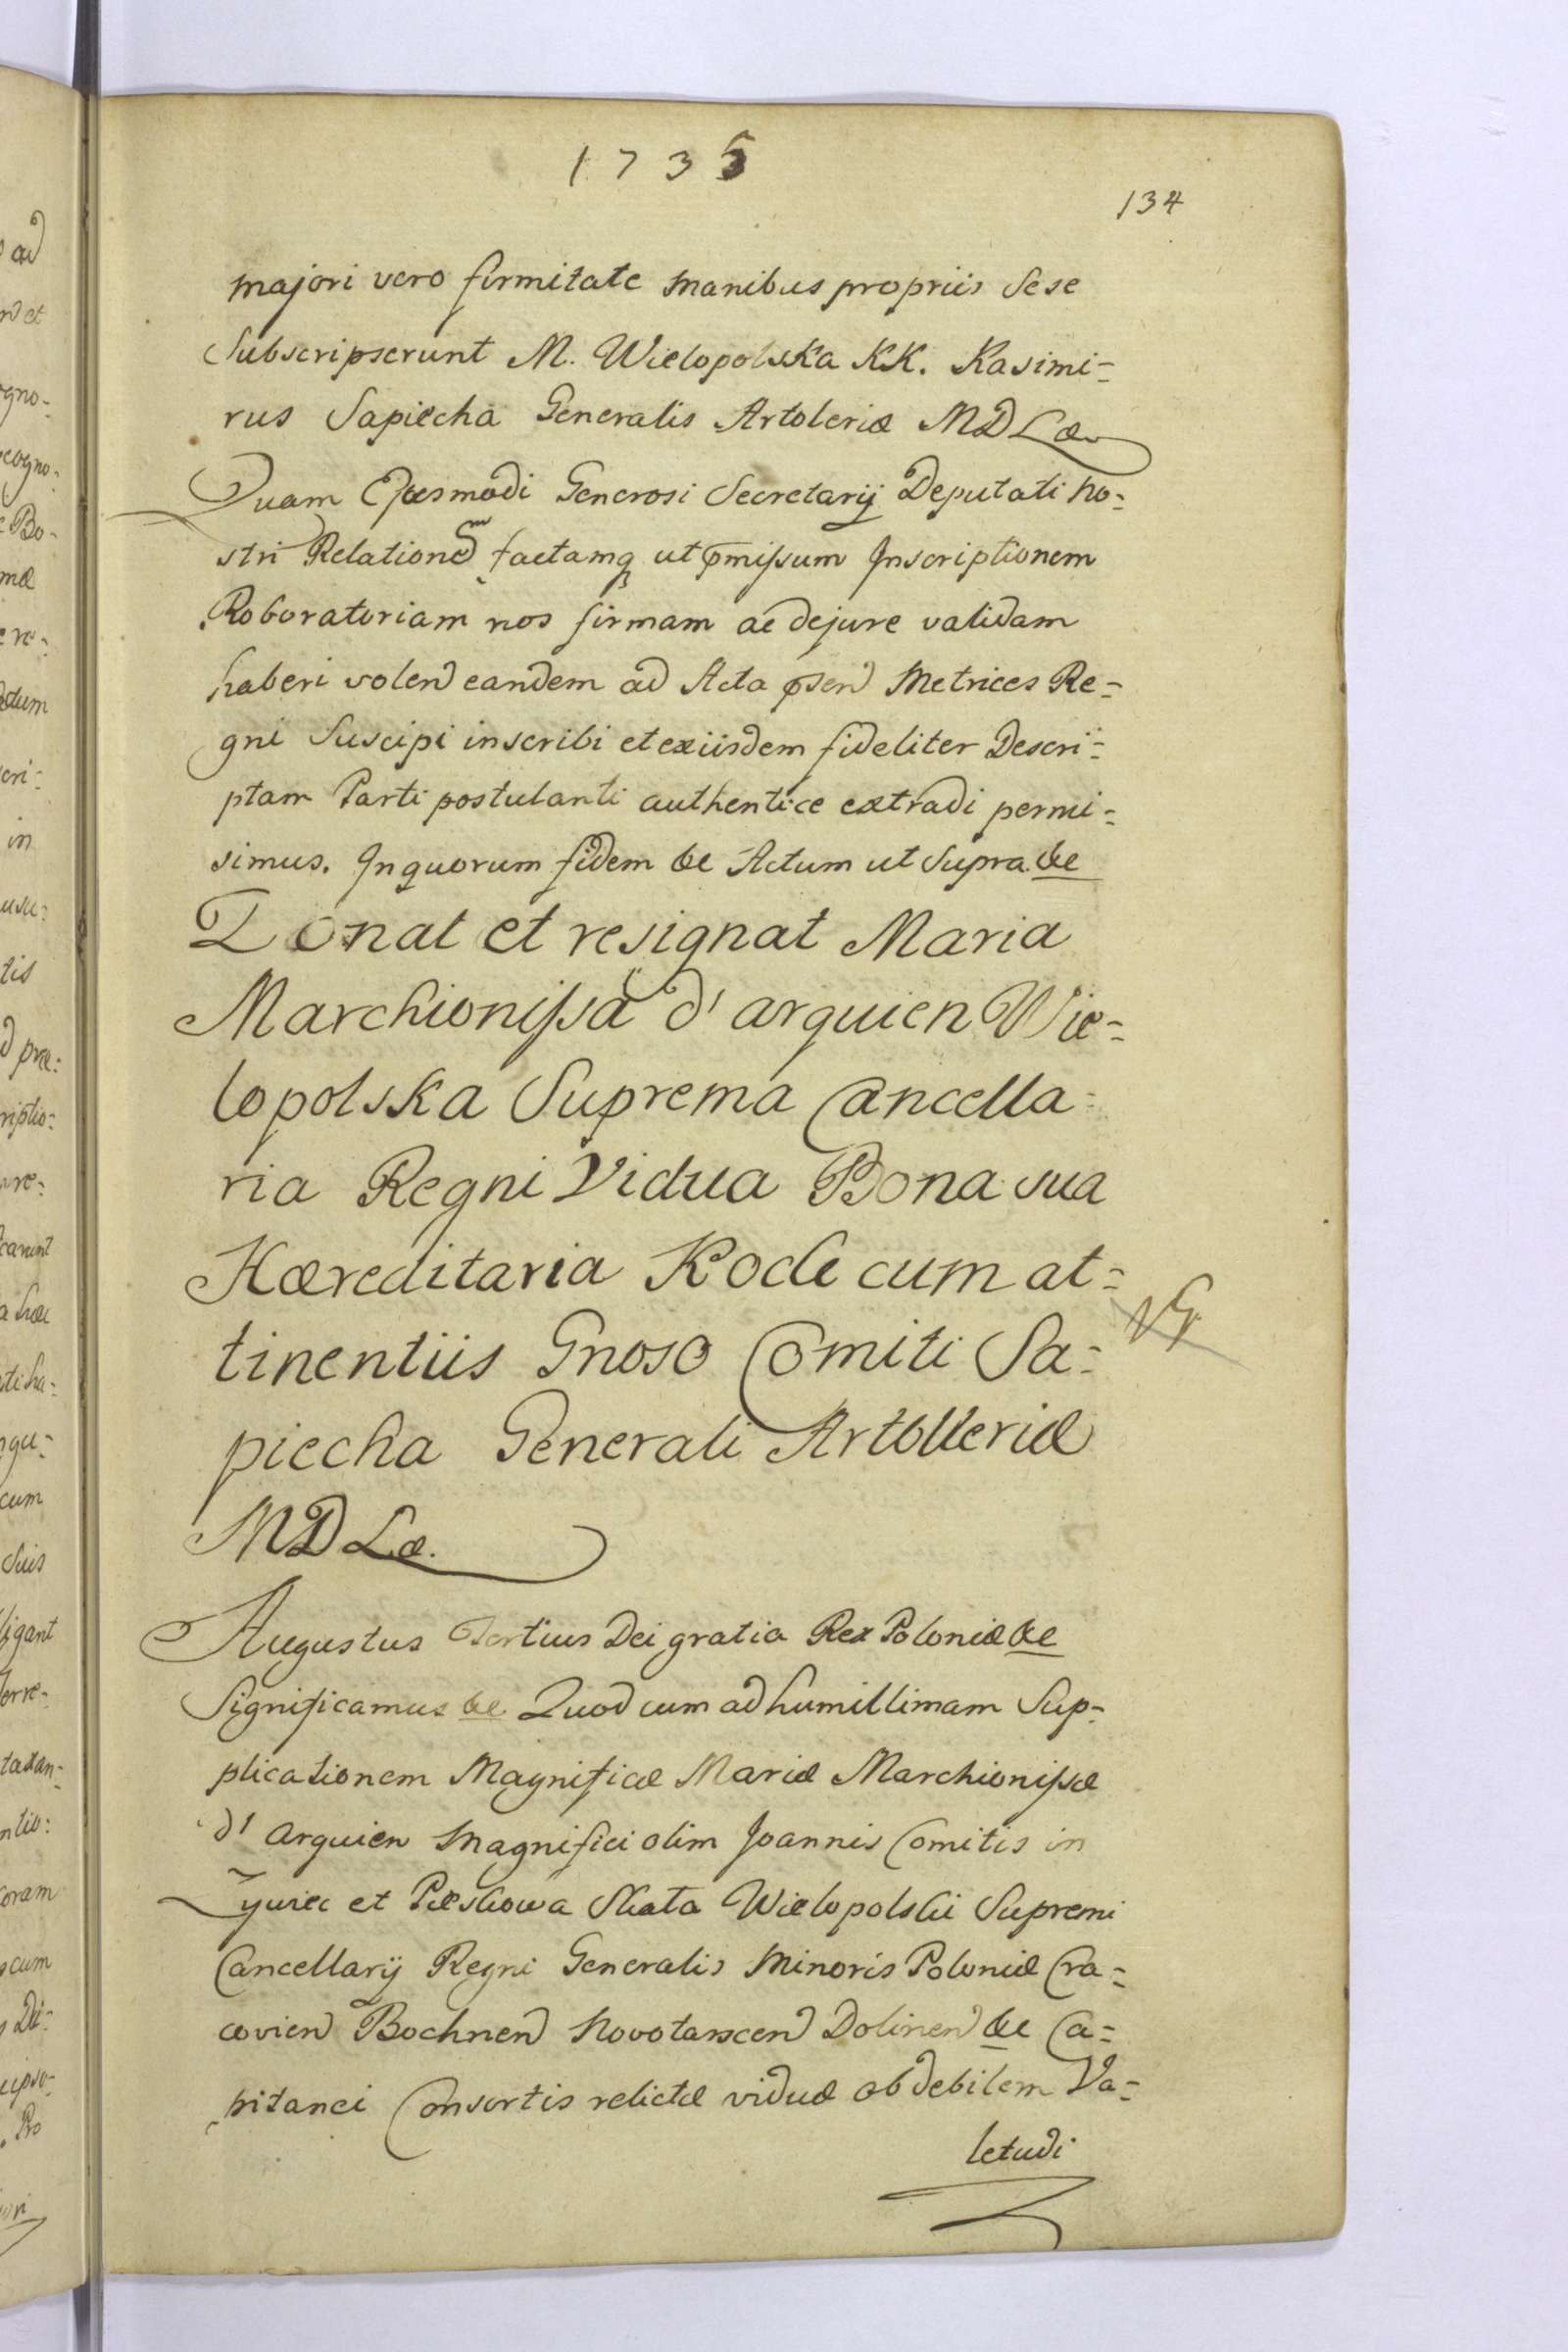 1735
134
majori vero firmitate manibus propriis Sese
Subscripserunt M. Wielopolska KK. Kasimi=
rus Sapiecha Generalis Artoleriæ MDLæ
Quam Ejusmodi Generosi Secretarij Deputati no=
stri Relationem factamq ut pmissum Inscriptionem
Roboratoriam nos firmam ac dejure validam
haberi volen eandem ad Acta psen Metrices Re=
gni Suscipi inscribi et exiisdem fideliter Descri=
ptam Parti postulanti authentice extradi permi=
simus. Inquorum fidem &c Actum ut Supra. &c
Donat et resignat Maria
Marchionissa d' arquien Wie=
lopolska Suprema Cancella=
ria Regni Vidua Bona sua
Hæreditaria Kock cum at=
tinentiis Gnoso Comiti Sa=
piecha Generali Artolleriæ
MDLæ.
Augustus Tertius Dei gratia Rex Poloniæ &c
Significamus &c Quod cum ad humillimam Sup=
plicationem Magnificæ Mariæ Marchionissæ
d' Arquien Magnifici olim Joannis Comitis in
Zywiec et Pieskowa Skata Wielopolskii Supremi
Cancellarij Regni Generalis Minoris Poloniæ Cra=
covien Bochnen Novotarscen Dolinen &c Ca=
pitanei Consortis relictæ viduæ ob debilem Va=
letudi